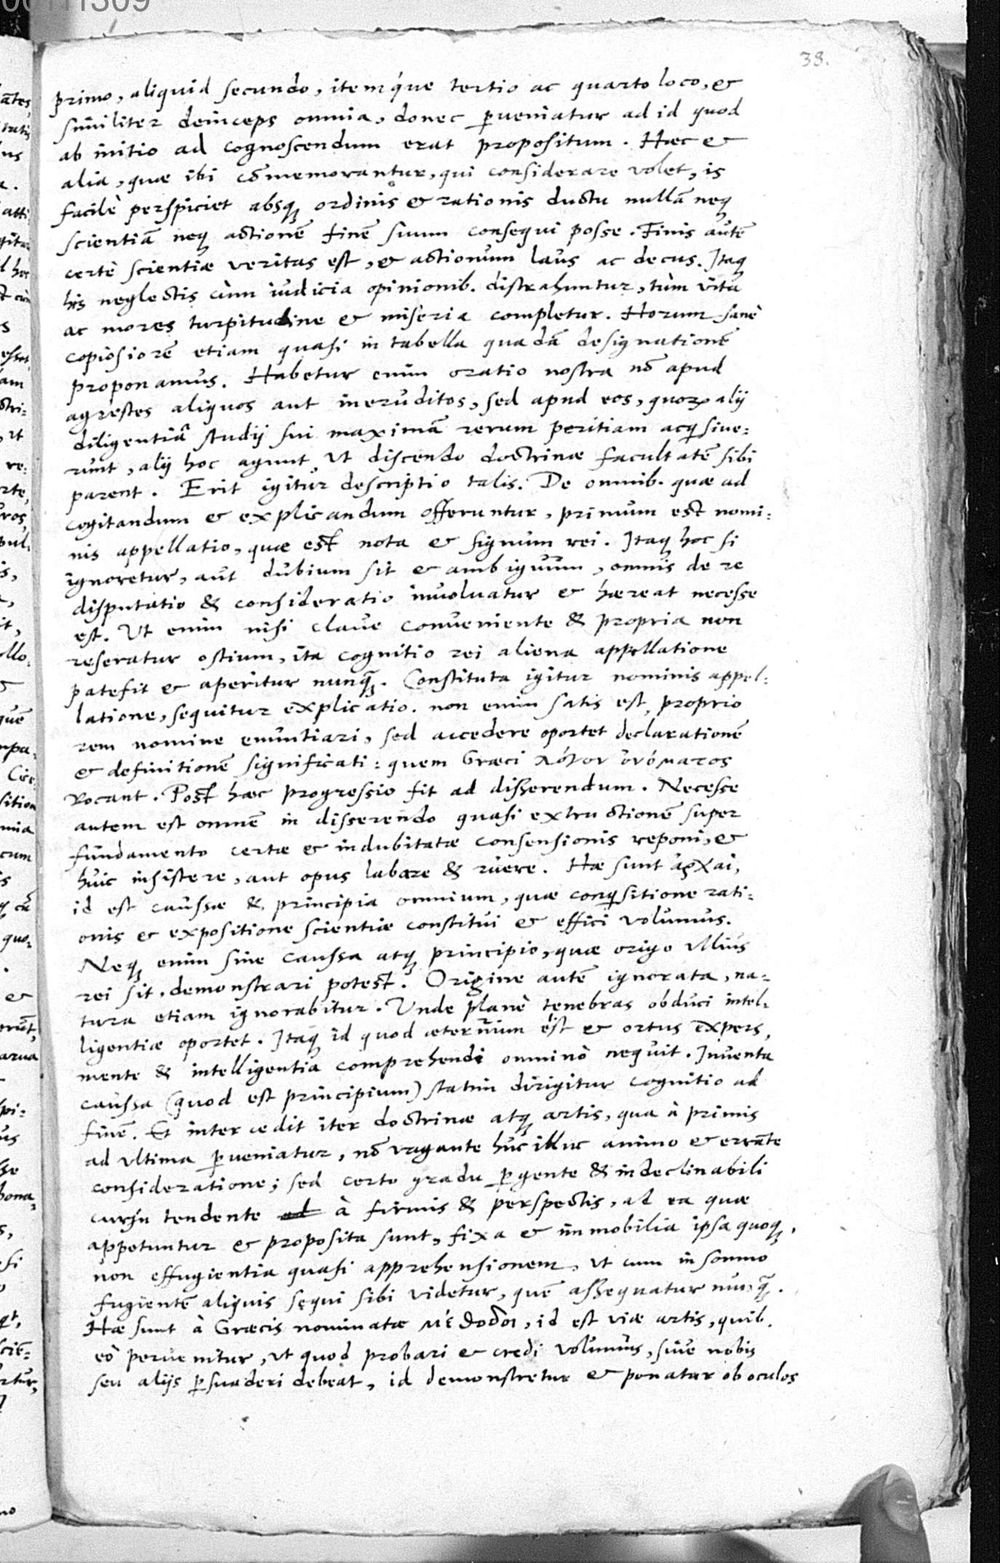 38.
primo, aliquid secundo, itemq́ue tertio ac quarto loco, &
similiter deinceps omnia, donec ꝑueniatur ad id quod
ab initio ad cognoscendum erat propositum. Haec &
alia, quae ibi cōmemorantur, qui considerare volet, is
facilè perspiciet absq; ordinis & rationis ductu nullā neq;
scientiā neq; actionē finē suum consequi posse. Finis autē
certè scientiae veritas est, & actionum laus ac decus. Itaq;
his neglectis cùm iudicia opinionib. distrahuntur, tùm vita
ac mores turpitudine & miseria completur. Horum sanè
copiosiorē etiam quasi in tabella quadā designationē
proponamus. Habetur enim oratio nostra nō apud
agrestes aliquos aut ineruditos, sed apud eos, quorꝫ alij
diligentiâ studij sui maximā rerum peritiam acq̇siue:
runt, alij hoc agunt, ut discendo doctrinae facultatē sibi
parent. Erit igitur descriptio talis. De omnib. quae ad
cogitandum & explicandum offeruntur, primum est nomi:
nis appellatio, quae est nota & signum rei. Itaq; hoc si
ignoretur, aut dubium sit & ambiguum, omnis de re
disputatio & consideratio inuoluatur & haereat necesse
est. Ut enim nisi claue conueniente & propria non
reseratur ostium, ita cognitio rei aliena appellatione
patefit & aperitur nunq̄;. Constituta igitur nominis appel:
latione, sequitur explicatio. non enim satis est, proprio
rem nomine enuntiari, sed accedere oportet declarationē
& definitionē significati: quem Graeci λόγον ὀνόματος
vocant. Post haec progressio fit ad disserendum. Necesse
autem est omnē in disserendo quasi extructionē super
fundamento certae & indubitatae consensionis reponi, &
huic insistere, aut opus labare & ruere. Hae sunt ἀρχαι,
id est caussae & principia omnium, quae conq̇sitione rati:
onis & expositione scientiae constitui & effici volumus.
Neq; enim sine caussa atq; principio, quae origo ullius
rei sit, demonstrari potest. Origine autē ignorata, na:
tura etiam ignorabitur. Unde planè tenebras obduci intel:
ligentiae oportet. Itaq; id quod aeternum est & ortus expers,
mente & intelligentia comprehendi omninò nequit. Inuenta
caussa (quod est principium) statim dirigitur cognitio ad
finē. Et intercedit iter doctrinae atq; artis, qua à primis
ad ultima ꝑueniatur, nō vagante huc illuc animo & errāte
consideratione; sed certo gradu ꝑgente & indeclinabili
cursu tendente à firmis & perspectis, ad ea quae
appetuntur & proposita sunt, fixa & immobilia ipsa quoq;,
non effugientia quasi apprehensionem, ut cum in somno
fugientē aliquis sequi sibi videtur, quē assequatur nunq̄;.
Hae sunt à Graecis nominatae μέθοδοι, id est viae artis, quib.
eò peruenitur, ut quod probari & credi volumus, siue nobis
seu alijs ꝑsuaderi debeat, id demonstretur & ponatur ob oculos